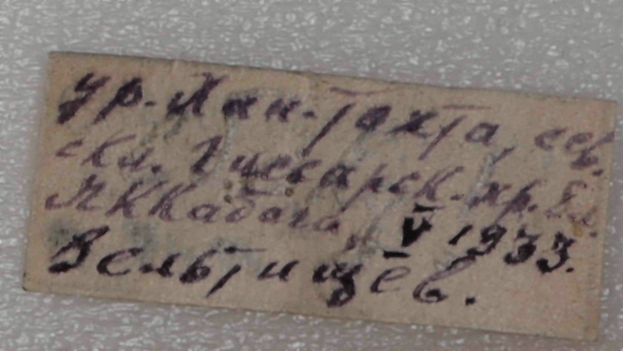 ур. Хан-Тахта, сев.
скл. Гиссарск. хр. бл.
Яккабага, V 1933.
Вельтищев.